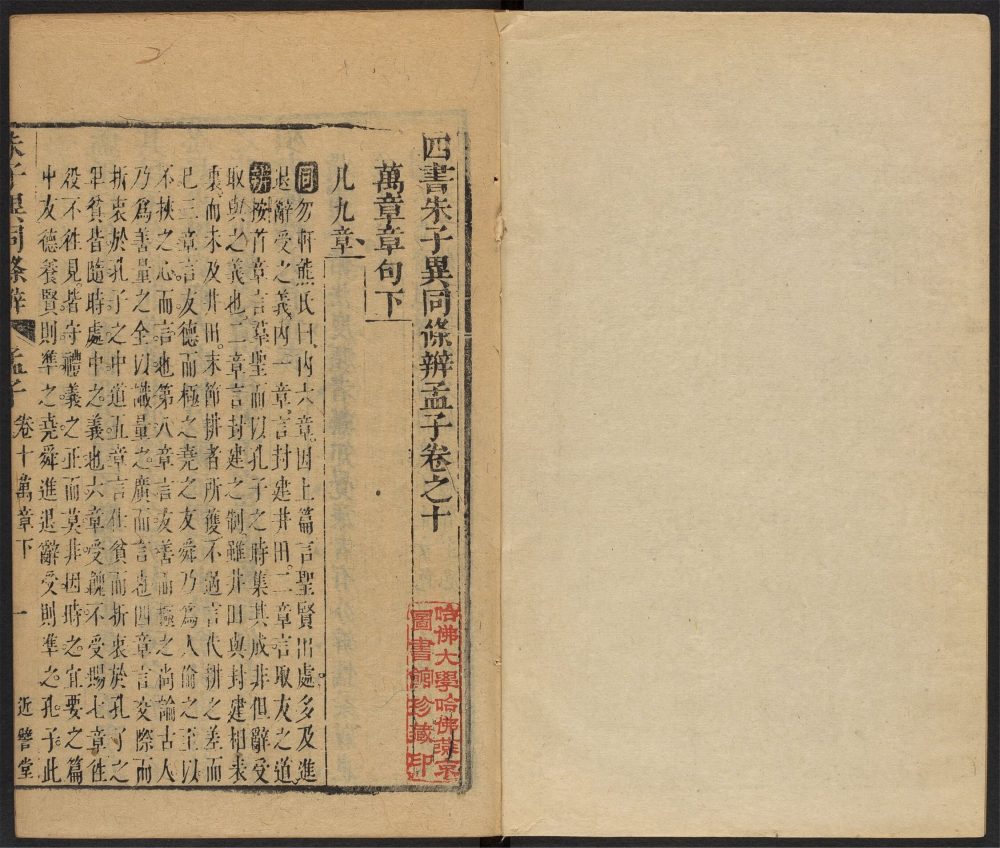 四書朱子異同條辨孟子卷之十
哈佛大學哈佛燕京
圖書館珍藏印
萬章章句下
凡九章
同勿軒熊氏曰内六章因上篇言聖賢出處多及進
退辭受之義内一章言封建井田二章言取友之道
辨按首章言羣聖而以孔子之時集其成非但辭受
取與之義也二章言封建之制雖井田與封建相表
裏而未及井田末節耕者所獲不過言代耕之差而
已三章言友德而極之堯之友舜乃爲人倫之至以
不挾之心而言也第八章言友善而極之尚論古人
乃爲善量之全以識量之廣而言也四章言交際而
折衷於孔子之中道五章言仕貧而折衷於孔子之
甲貧皆隨時處中之義也六章受餽不受賜七章徃
役不徃見皆守禮義之正而莫非因時之宜要之篇
中友德養賢則準之堯舜進退辭受則準之孔子此
朱子異同條辨 孟子 卷十萬章下 一 近譬堂